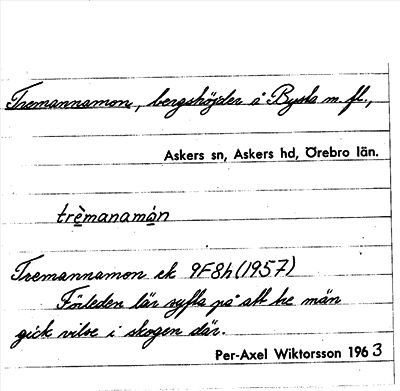 Tremannamon, bergshöjder å Bysta m. fl.,
Askers sn, Askers hd, Örebro län.
trèmanamån
Tremannamon ek 9F8h (1957)
Förleden lär syfta på att tre män
gick vilse i skogen där.
Per-Axel Wiktorsson 1963